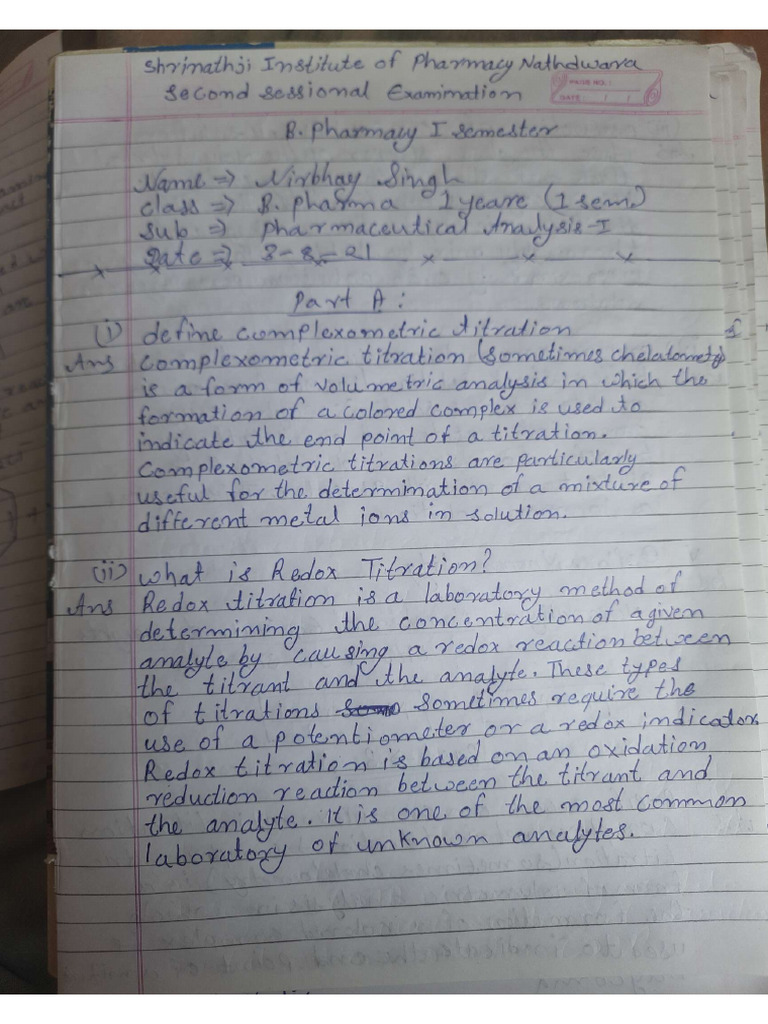 Shrinathji Institute of Pharmacy Nathdwara
Second Sessional Examination
PAGE NO.:
DATE: / /
B. Pharmacy I semester
Name ⇒ Nirbhay Singh
Class ⇒ B. Pharma 1 yeare (1 sem.)
Sub ⇒ Pharmaceutical Analysis-I
Date ⇒ 3-8-21
Part A :
(i) define complexometric titration
Ans Complexometric titration (sometimes chelatometry)
is a form of volumetric analysis in which the
formation of a colored complex is used to
indicate the end point of a titration.
Complexometric titrations are particularly
useful for the determination of a mixture of
different metal ions in solution.
(ii) What is Redox Titration?
Ans Redox titration is a laboratory method of
determining the concentration of a given
analyte by causing a redox reaction between
the titrant and the analyte. These types
of titrations sometimes require the
use of a potentiometer or a redox indicator
Redox titration is based on an oxidation
reduction reaction between the titrant and
the analyte. it is one of the most common
laboratory of unknown analytes.